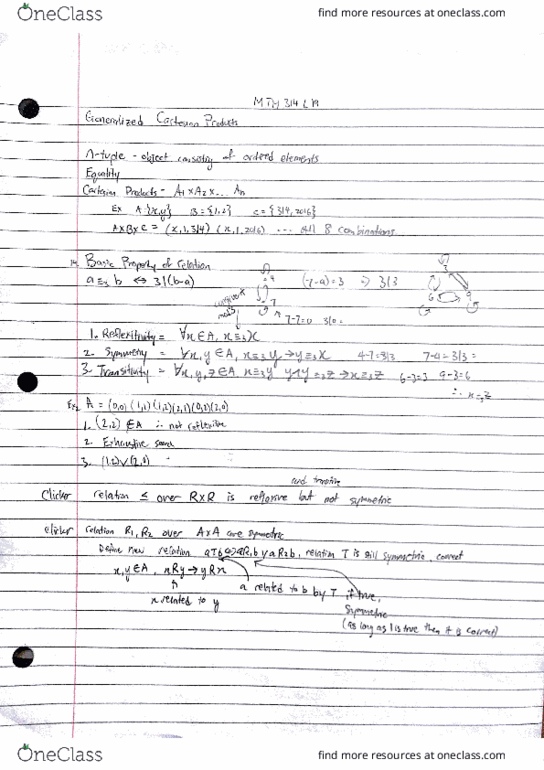 OneClass find more resources at oneclass.com
MTH 314 L19
Generalized Cartesian Products
n-tuple - object consisting of ordered elements
Equality
Cartesian Products - A1 x A2 x ... An
Ex A {x,y} B = {1,2} C = {314, 2016}
A x B x C = (x, 1, 314) (x, 1, 2016) ... all 8 combinations
Basic Property of relation
a ≡3 b ⇔ 3|(b-a)
(7-4)=3 ⇒ 3|3
7-7=0 3|0
1. Reflexitivity = ∀x ∈ A, x ≡3 x
2. Symmetry = ∀x, y ∈ A, x ≡3 y → y ≡3 x 4-7=3|3 7-4=3|3
3. Transitivity = ∀x, y, z ∈ A, x ≡3 y y ≡3 z → x ≡3 z 6-3=3 9-3=6
∴ x ≡3 z
Ex2 A = (0,0) (1,1) (1,2) (2,1) (0,2) (2,0)
1. (2,2) ∉ A ∴ not reflexive
2. Exhaustive search
3. (1,2) ∨ (2,0)
and transitive
Clicker relation ≤ over R x R is reflexive but not symmetric
clicker relation R1, R2 over A x A are symmetric
Define new relation aTb ⇔ aR1b ∨ aR2b, relation T is still symmetric, correct
x, y ∈ A, xRy → yRx
a related to b by T if true,
x related to y
Symmetric
(as long as 1 is true then it is correct)
OneClass find more resources at oneclass.com